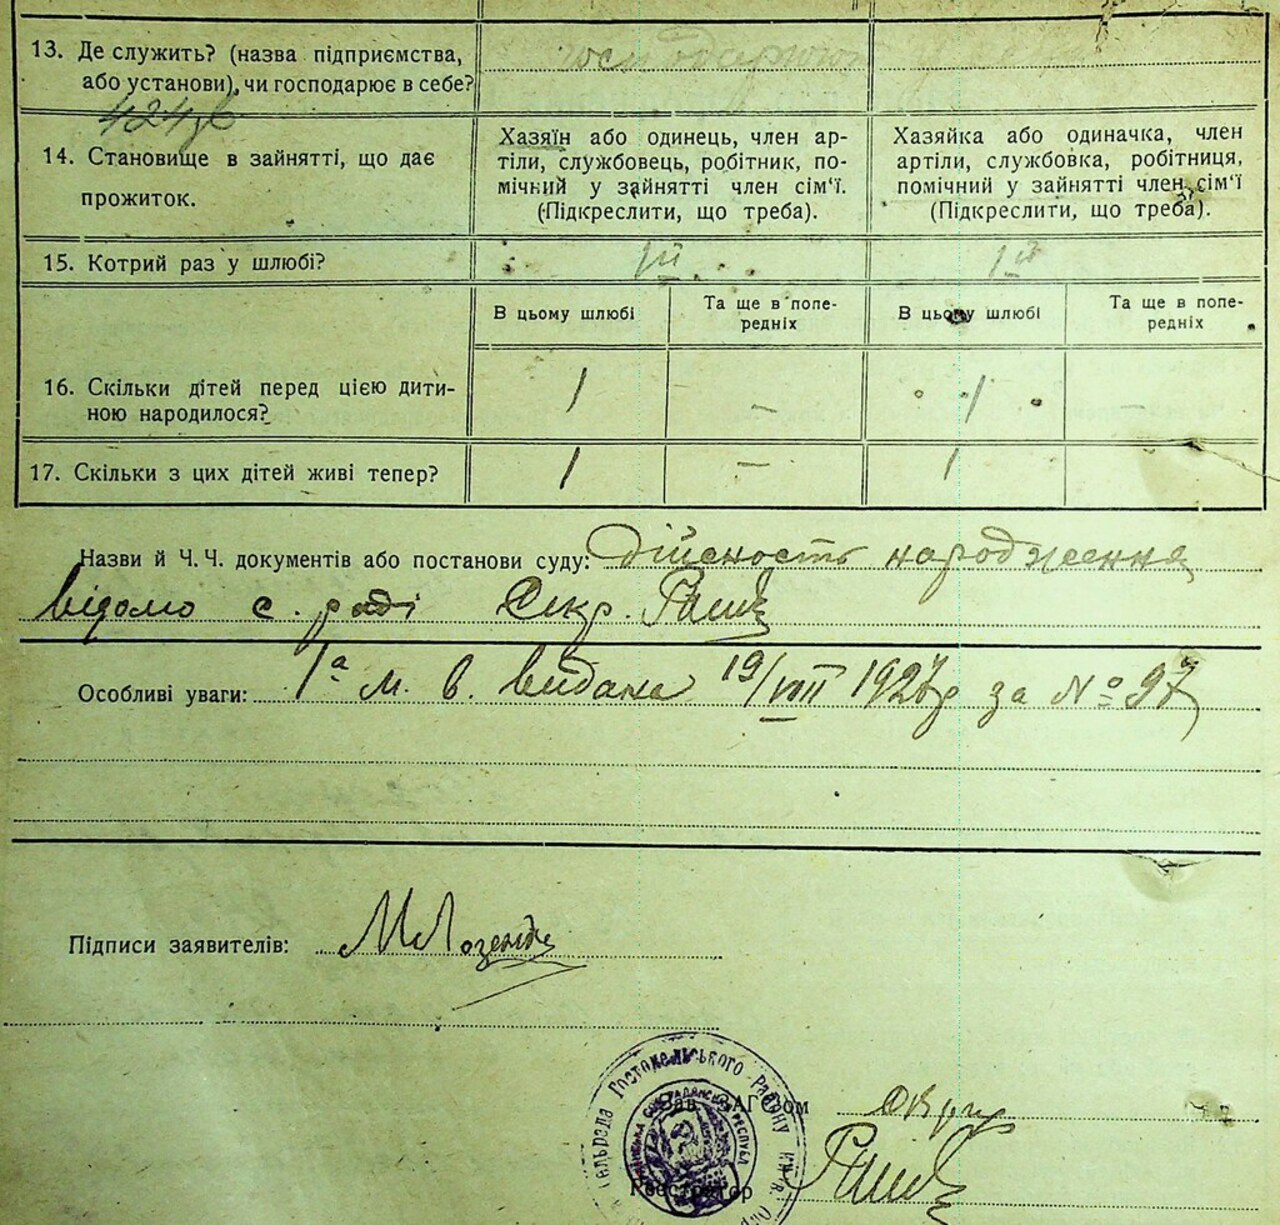 13. Де служить? (назва підприємства,
або установи), чи господарює в себе?
господарюють у себе
424зв
14. Становище в зайнятті, що дає
прожиток.
Хазяїн або одинець, член ар-
тілі, службовець, робітник, по-
мічний у зайнятті член сім‘ї.
(Підкреслити, що треба).
Хазяйка або одиначка, член
артілі, службовка, робітниця,
помічний у зайнятті член сім‘ї
(Підкреслити, що треба).
15. Котрий раз у шлюбі?
1й
1й
В цьому шлюбі
Та ще в попе-
редніх
В цьому шлюбі
Та ще в попе-
редніх
16. Скільки дітей перед цією дити-
ною народилося?
1 – 1 –
17. Скільки з цих дітей живі тепер?
1 – 1
Назви й Ч. Ч. документів або постанови суду: Дійсность народження
відомо с. раді Секр.
Особливі уваги: 1а м. в. видана 19/VIII 1927р за № 97
Підписи заявителів:
Гостомельського Району
Зав ЗАГ‘ом
Реєстратор